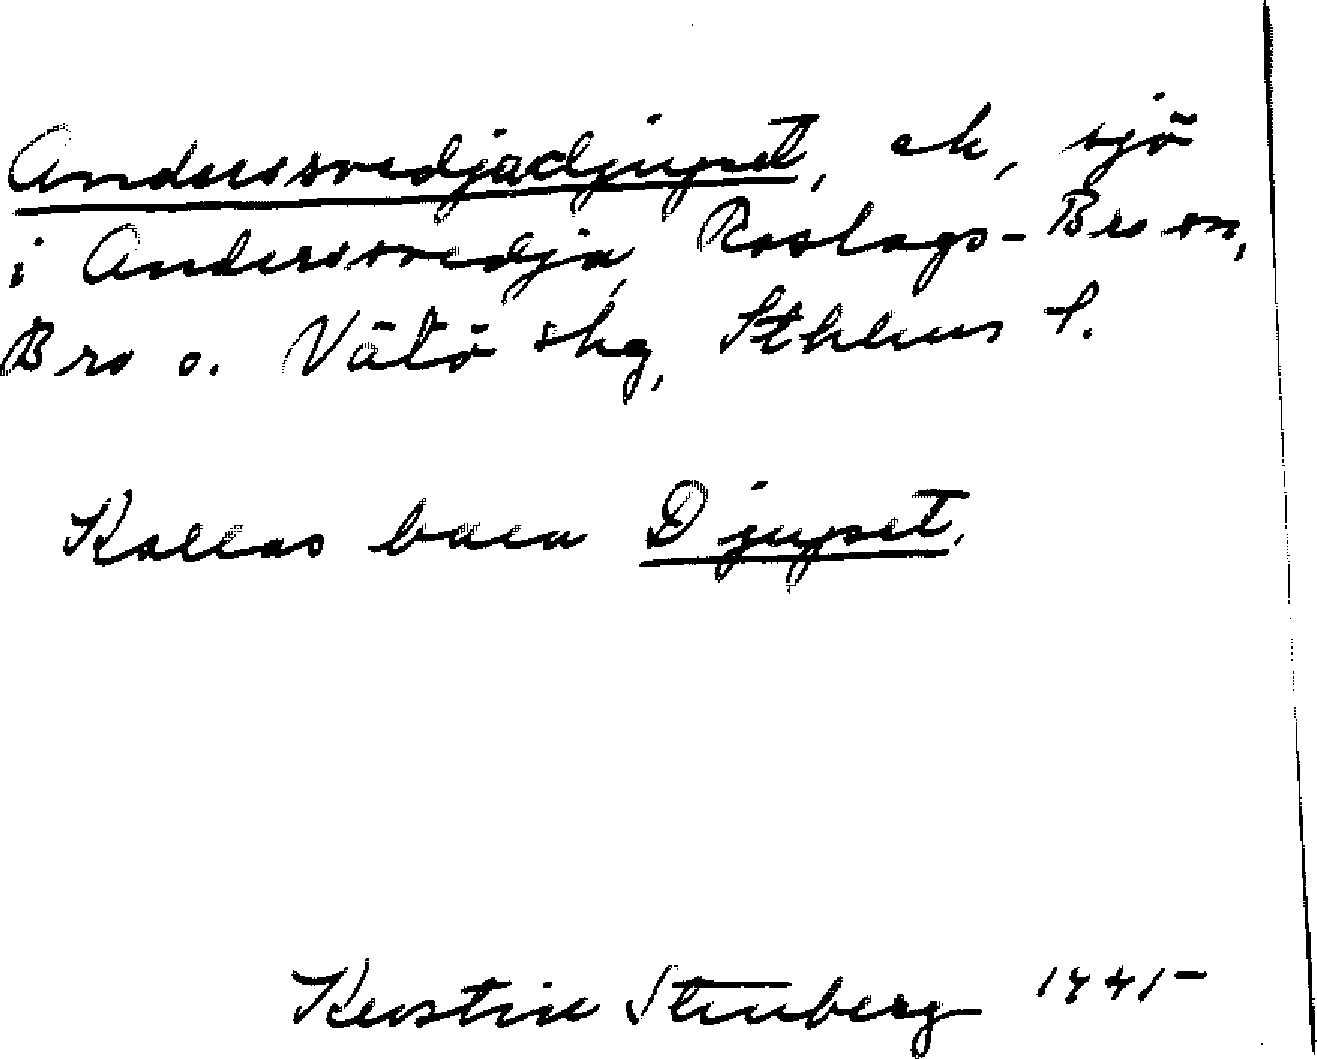 Anderssvedjadjupet, ek, sjö
i Anderssvedja, Roslags-Bro sn,
Bro o. Vätö skg, Sthlms l.
Kallas bara Djupet.
Kerstin Stenberg